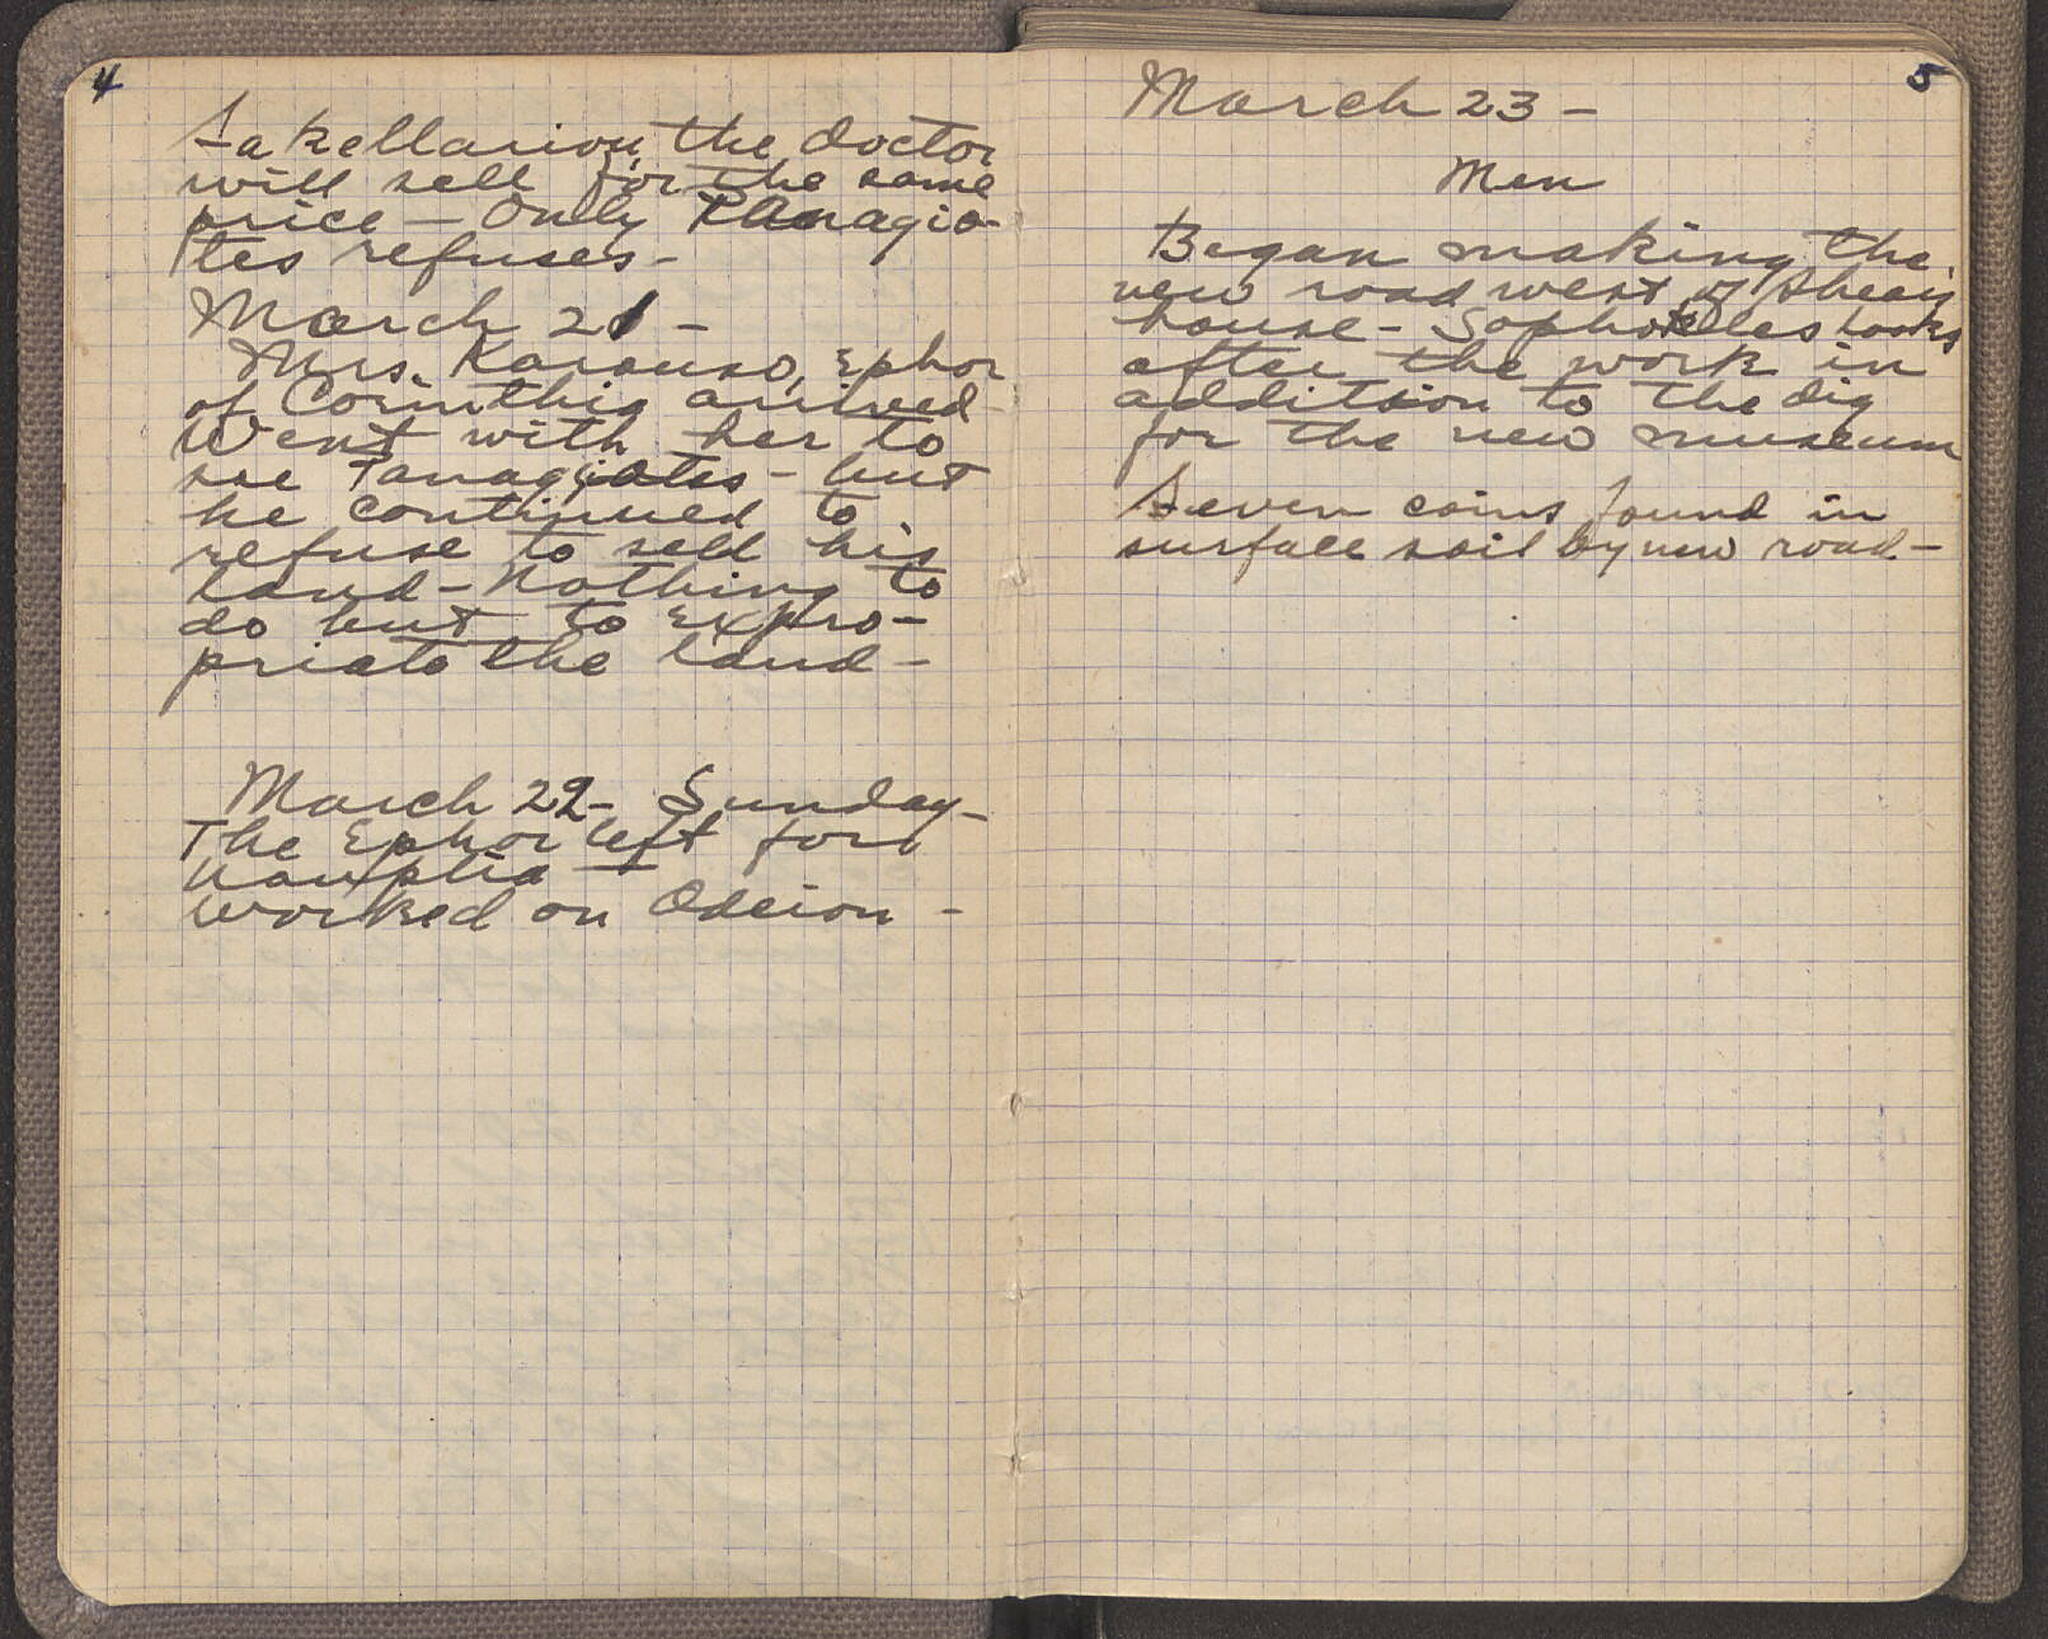 4
Sakellariou, the doctor
will sell for the same
price — Only Panagio-
tes refuses -
March 21 -
Mrs. Karouso, Ephor
of Corinthia arrived
Went with her to
see Panagiotes - but
he continued to
refuse to sell his
land - Nothing to
do but to expro-
priate the land -
March 22 - Sunday -
The Ephor left for
Nauplia —
Worked on Odeion -
5
March 23 -
Men
Began making the
new road west of Shear
house - Sophokles looks
after the work in
addition to the dig
for the new museum
Seven coins found in
surface soil by new road -